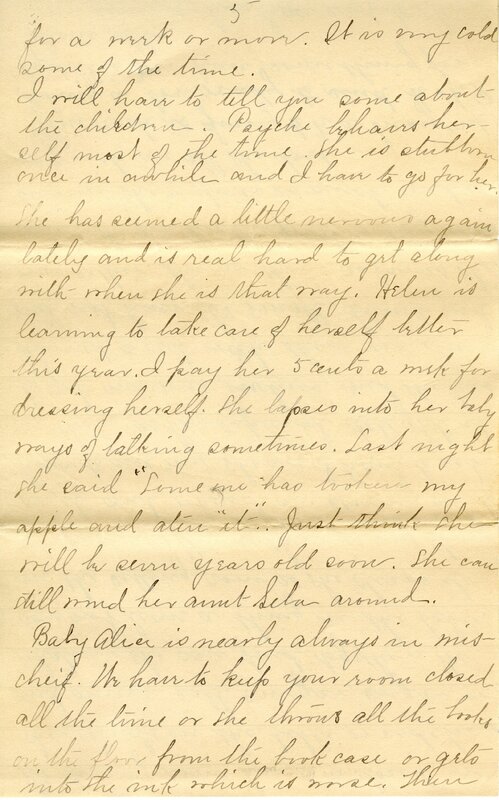 5
for a week or more. It is very cold
some of the time.
I will have to tell you some about
the children. Psyche behaves her-
self most of the time. She is stubborn
once in awhile and I have to go for her.
She has seemed a little nervous again
lately and is real hard to get along
with when she is that way. Helen is
learning to take care of herself better
this year. I pay her 5 cents a week for
dressing herself. She lapses into her baby
ways of talking sometimes. Last night
she said "Some one has tooken my
apple and aten "it". Just think she
will be seven years old soon. She can
still wind her aunt Lela around.
Baby Alice is nearly always in mis-
cheif. We have to keep your room closed
all the time or she throws all the books
on the floor from the book case or gets
into the ink which is worse. Then